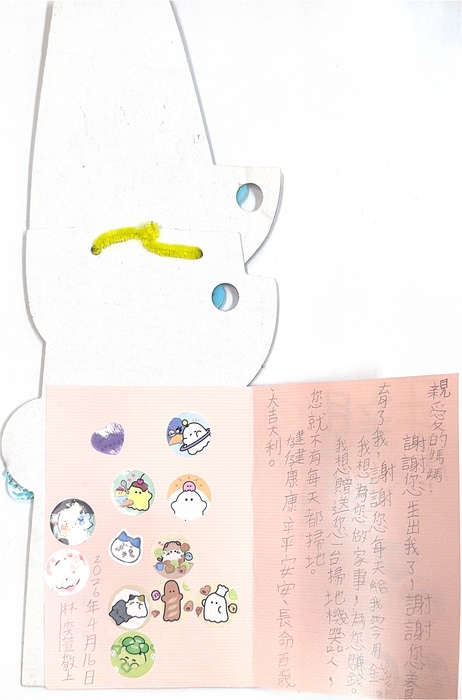 親愛的媽媽：
謝謝您生出我了，謝謝您養
育了我，謝謝您每天給我零用錢，
我想為您做家事，為您賺錢。
我想贈送您一台掃地機器人，
您就不有每天都掃地。
健健康康、平平安安、長命百歲
、大吉大利。
林 敬上
2026年4月16日